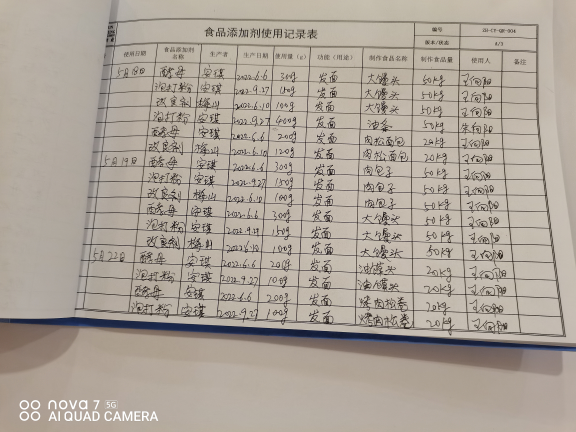 食品添加剂使用记录表
编号
版本/状态 A/1
使用日期 食品添加剂名称 生产者 生产日期 使用量(g) 功能(用途) 制作食品名称 制作食品量 使用人 备注
5月18日 酵母 安琪 2022.6.6 300g 发面 大馒头 50kg 王向阳
泡打粉 安琪 2022.9.27 发面 大馒头 50kg 王向阳
改良剂 梅山 2022.6.10 100g 发面 大馒头 50kg 王向阳
泡打粉 安琪 2022.9.27 400g 发面 油条 50kg 向阳
酵母 安琪 2022.6.6 200g 发面 肉松面包 20kg 王向阳
改良剂 梅山 2022.6.10 120g 发面 肉松面包 20kg 王向阳
5月19日 酵母 安琪 2022.6.6 300g 发面 肉包子 50kg 王向阳
泡打粉 安琪 2022.9.27 150g 发面 肉包子 50kg 王向阳
改良剂 梅山 2022.6.10 100g 发面 肉包子 50kg 王向阳
酵母 安琪 2022.6.6 300g 发面 大馒头 50kg 王向阳
泡打粉 安琪 2022.9.27 150g 发面 大馒头 50kg 王向阳
改良剂 梅山 2022.6.10 100g 发面 大馒头 50kg 王向阳
5月22日 酵母 安琪 2022.6.6 200g 发面 油馒头 20kg 王向阳
泡打粉 安琪 2022.9.27 100g 发面 油馒头 20kg 王向阳
酵母 安琪 2022.6.6 200g 发面 烤肉松卷 20kg 王向阳
泡打粉 安琪 2022.9.27 100g 发面 烤肉松卷 20kg 王向阳
nova 7 5G
AI QUAD CAMERA